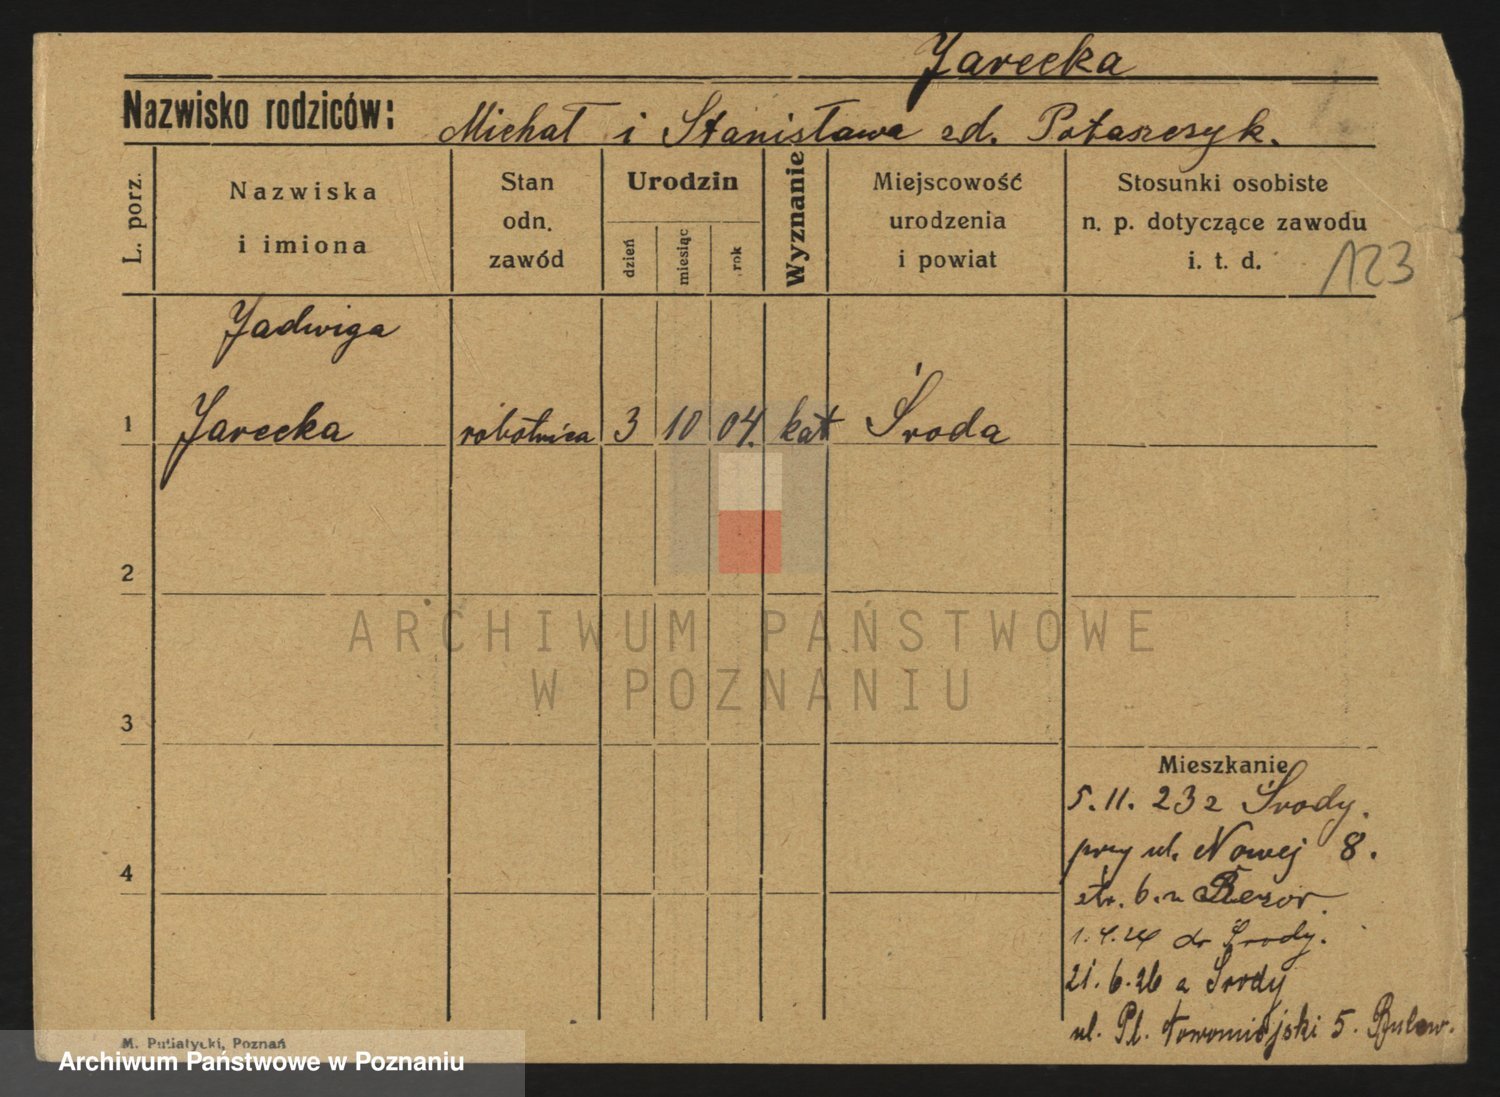 Jarecka
Nazwisko rodziców: Michał i Stanisława zd. Potaszczyk.
L. porz.
Nazwiska
i imiona
Stan
odn.
zawód
Urodzin
dzień
miesiąc
rok
Wyznanie
Miejscowość
urodzenia
i powiat
Stosunki osobiste
n. p. dotyczące zawodu
i. t. d.
123
Jadwiga
1 Jarecka robotnica 3 10 04. kat Środa
2
3
4
ARCHIWUM PAŃSTWOWE
W POZNANIU
Mieszkanie
5.11.23 z Środy.
przy ul. Nowej 8.
str. 6. u
1.4.24 do Środy.
21.6.26 z Środy
ul. Pl. 5.
M. Putiatycki, Poznań
Archiwum Państwowe w Poznaniu